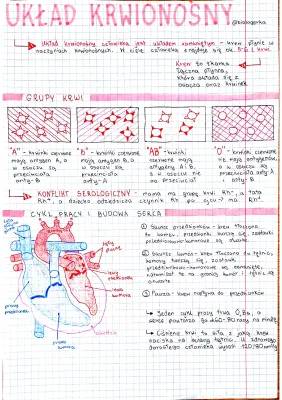 UKŁAD KRWIONOŚNY
@biologerka
Układ krwionośny człowieka jest układem zamkniętym - krew płynie w
naczyniach krwionośnych. W ciele człowieka znajduje się ok. 5-6 l krwi.
Krew to tkanka
łączna płynna,
która składa się z
osocza oraz krwinek
GRUPY KRWI
"A" - krwinki czerwone
mają antygen A, a
w osoczu są
przeciwciała
anty-B
"B" - krwinki czerwone
mają antygen B, a
w osoczu są
przeciwciała
anty-A
"AB" - krwinki
czerwone mają
antygeny A i B,
a w osoczu nie
ma przeciwciał
"0" - krwinki czerwone
nie mają antygenów,
a w osoczu są
przeciwciała
anty-A i
anty-B
KONFLIKT SEROLOGICZNY - mama ma grupę krwi Rh⁻, a tata
Rh⁺, a dziecko odziedziczy czynnik Rh po ojcu
CYKL PRACY I BUDOWA SERCA
① Skurcz przedsionków - krew tłoczona
do komór,
są otwarte.
② Skurcz komór - krew tłoczona do tętnic,
komory kurczą się, zastawki
przedsionkowo-komorowe są zamknięte,
③ Pauza - krew napływa do przedsionków
Jeden cykl pracy trwa 0,8s, a
serce powtarza go 60-80 razy na minutę
Ciśnienie krwi to siła z jaką krew
naciska na ściany tętnicy. U zdrowego
dorosłego człowieka wynosi 120/80 mmHg
prawy
przedsionek
prawa
komora
lewy
przedsionek
lewa
komora